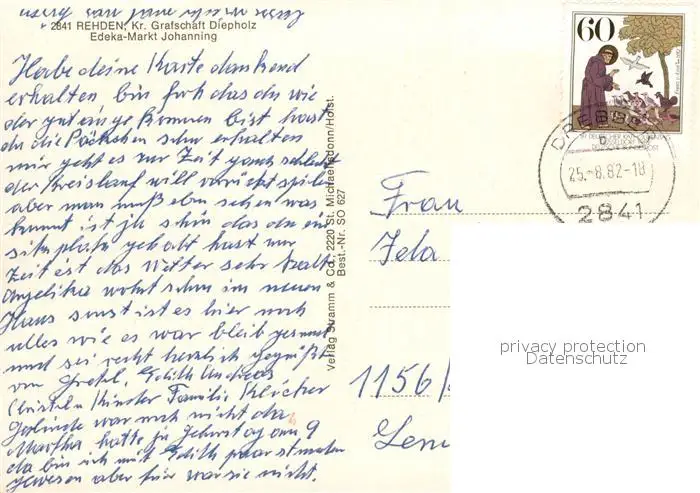 2841 REHDEN, Kr. Grafschaft Diepholz
Edeka-Markt Johanning
Habe deine Karte dankend
erhalten bin froh das du wie
der gut angekommen bist hast
du die Päckchen schon erhalten
mir geht es zur Zeit ganz schlecht
der Kreislauf will verrückt spielen
aber man muß eben sehen was
kommt ist ja schön das du ein
sitzplatz gehabt hast zur
Zeit ist das Wetter sehr kalt
Angelika wohnt schon im neuen
Haus sonst ist es hier noch
alles wie es war bleib gesund
und sei recht herzlich gegrüßt
von Gretel, Edith Andreas
Christel u Kinder Familie
Gerlinde war noch nicht da
Martha hatte ja Geburtstag am 9
da bin ich mit Edith paar stunden
gewesen aber für war sie nicht.
Verlag Stramm & Co., 2220 St. Michaelisdonn/Holst.
Best.-Nr. SO 627
60
25.-8.82-18
2841
Frau
1156/
privacy protection
Datenschutz